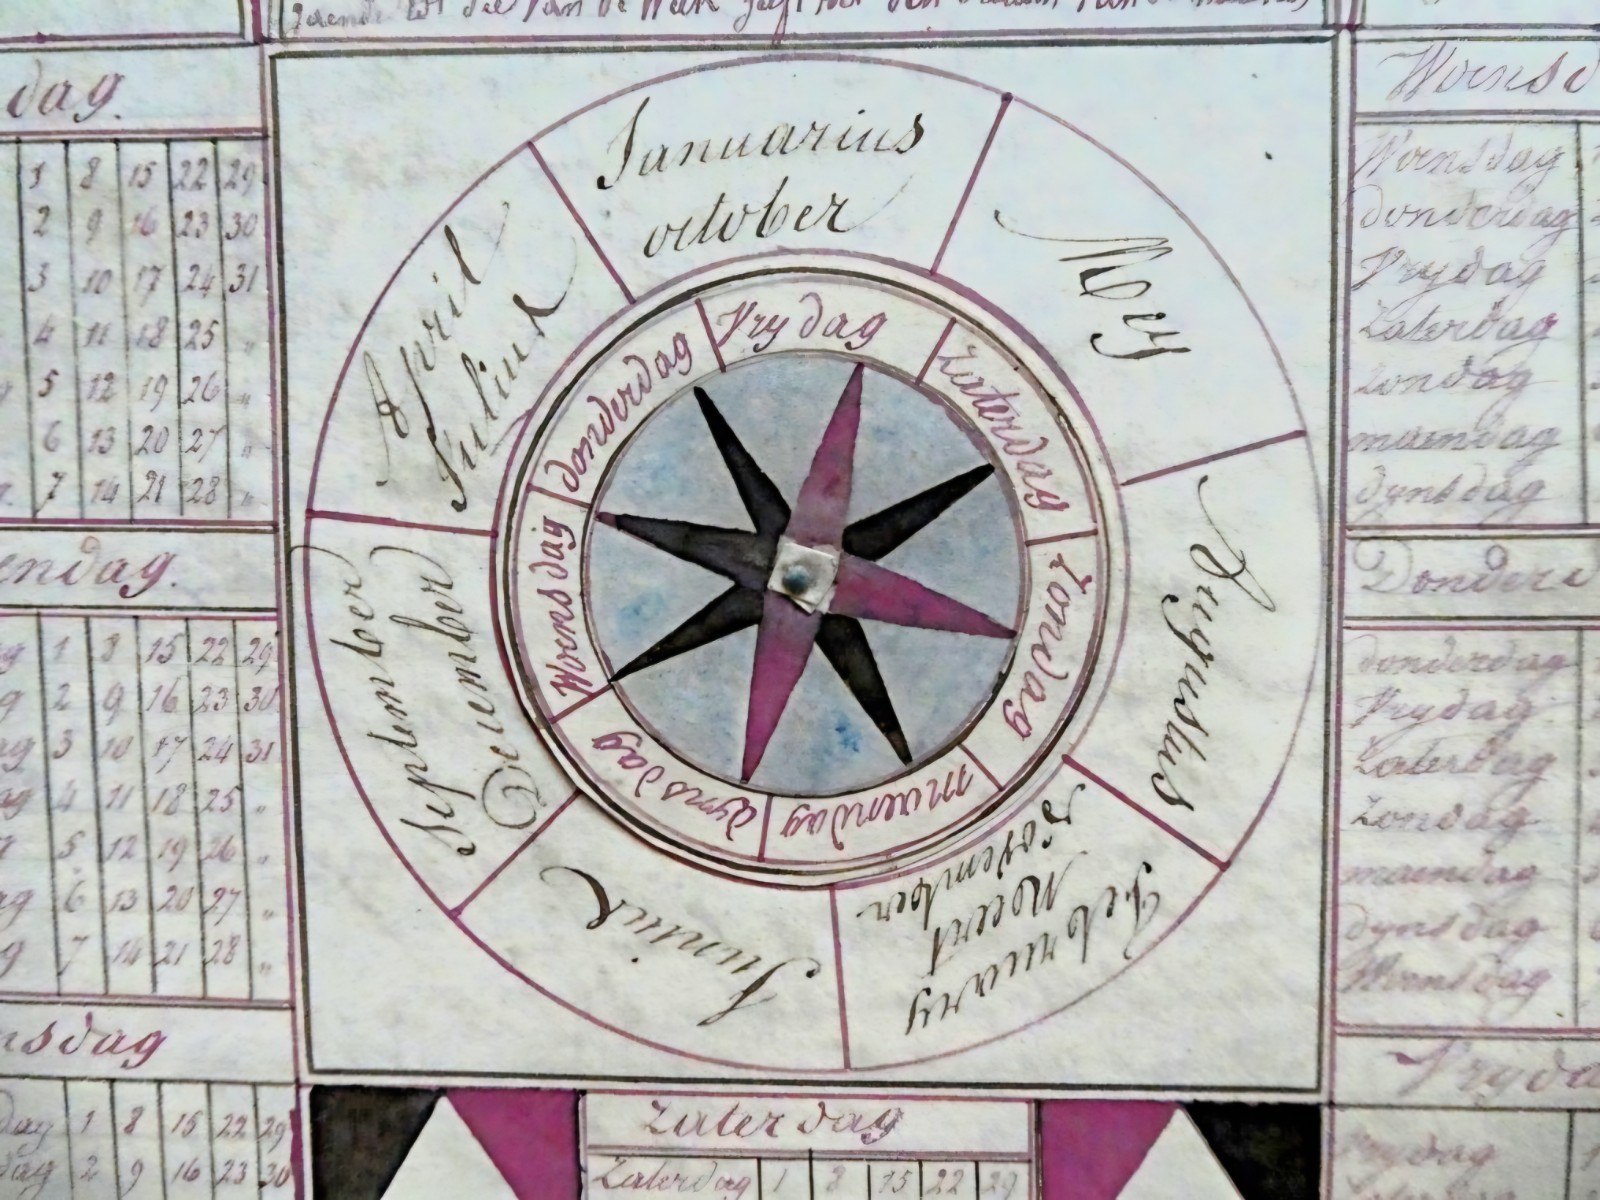 dag.
1 8 15 22 29
2 9 16 23 30
3 10 17 24 31
4 11 18 25 "
5 12 19 26 "
6 13 20 27 "
7 14 21 28 "
endag.
1 8 15 22 29
2 9 16 23 30
3 10 17 24 31
4 11 18 25 "
5 12 19 26 "
6 13 20 27 "
7 14 21 28 "
nsdag
dag 1 8 15 22 29
dag 2 9 16 23 30
Januarius
october
Mey
Augustus
February
Meert
November
Junius
September
December
April
Julius
Vrydag
Zaterdag
Zondag
maendag
dynsdag
Woensdag
donderdag
Zaterdag
Zaterdag 1 8 15 22 29
Woensd
Woensdag
donderdag
Vrydag
Zaterdag
Zondag
maendag
dynsdag
Donderd
donderdag
Vrydag
Zaterdag
Zondag
maendag
dynsdag
Woensdag
Vryda
Vrydag 1